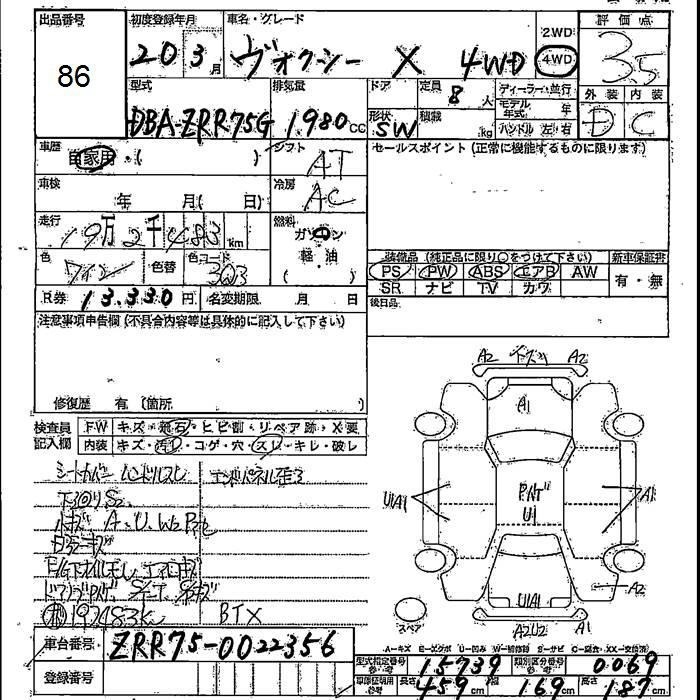 出品番号 初度登録年月 車名・グレード 評価点
86 20 3月 ヴォクシー X 4WD 2WD 4WD 3.5
型式 排気量 ドア 定員 8人 ディーラー・並行 外装 内装
モデル年式 年
DBA-ZRR75G 1980cc 形状 SW 積載 kg ハンドル 左・右 D C
車歴 自家用・( ) シフト AT セールスポイント (正常に機能するものに限ります)
車検 年 月( 日) 冷房 AC
走行 19万2千483km 燃料 ガソリン
色 ワイン 色替 色コード 3Q3 軽・油 ( ) 装備品 (純正品に限り○をつけて下さい) 新車保証書
PS PW ABS エアB AW 有・無
R券 13,330円 名変期限 月 日 SR ナビ TV カワ
注意事項申告欄 (不具合内容等は具体的に記入して下さい) 後日品
修復歴 有 (箇所
検査員記入欄 FW キズ・飛石・ヒビ割・リペア跡・X要
内装 キズ・汚れ・コゲ・穴・スレ・キレ・破レ
シートカバー ハンドルスレ エンドパネル歪ミ
下回りS2
小キズ A、U、W2
E/G下オイルモレ
192483km BTX
車台番号 ZRR75-0022356
登録番号
A2 下スリ A2
A1
UIAI パノゲ U1 A1
A2
UIAI
スペア A2U2 A1
A-キズ E-エクボ U-凹み W-補修跡 S-サビ C-腐食・XX-交換済
型式指定番号 15739 類別区分番号 0069
車庫証明用参考 長さ 459cm 幅 169cm 高さ 187cm